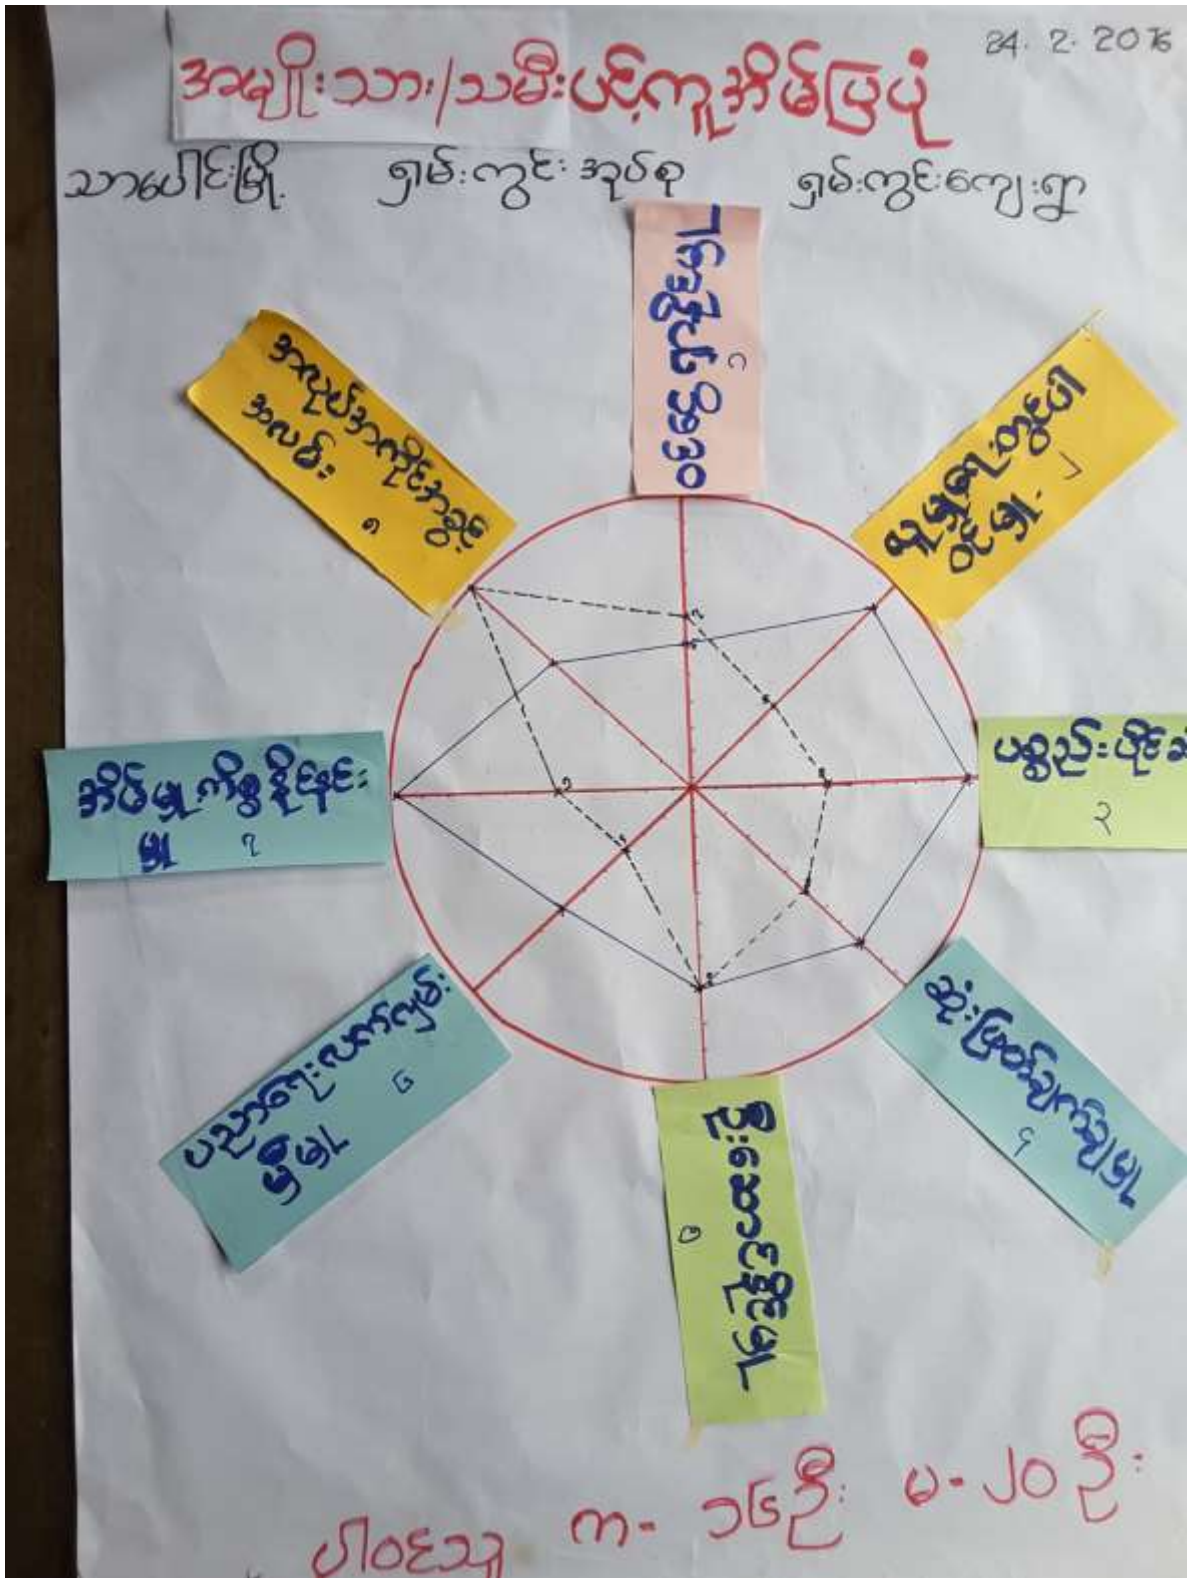 24. 2. 2016
အမျိုးသား/သမီးပင့်ကူအိမ်ပြပုံ
သာပေါင်းမြို့ ရှမ်းကွင်းအုပ်စု ရှမ်းကွင်းကျေးရွာ
၁
လူမှုရေးတွင်ပါ
ဝင်မှု ၂
ပစ္စည်းပိုင်ဆိ
၃
ဆုံးဖြတ်ချက်ချမှု
၄
ဦးဆောင်နိုင်မှု
၅
ပညာရေးလက်လှမ်း
မှီမှု ၆
အိမ်မှုကိစ္စနိုင်နင်း
မှု ၇
အလုပ်အကိုင်အခွင့်
အလမ်း ၈
ပါဝင်သူ က - ၁၆ ဦး မ - ၂၀ ဦး